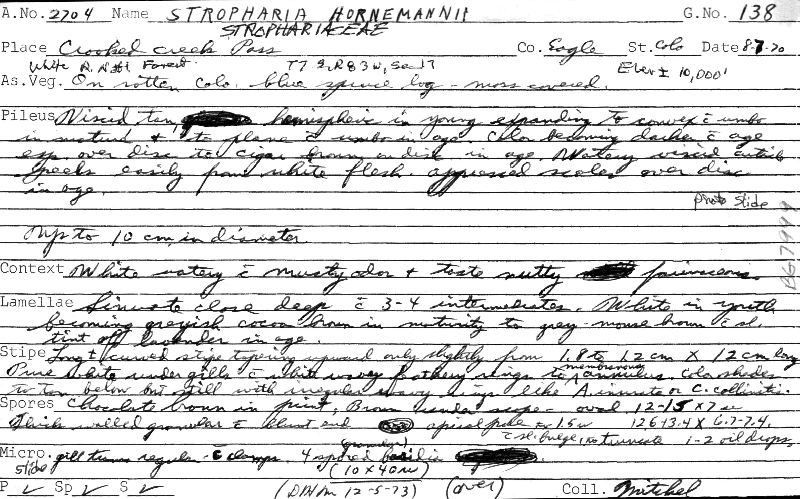 A.No. 2704 Name STROPHARIA HORNEMANNII G.No. 138
STROPHARIACEAE
Place Crooked creek Pass Co. Eagle St. Colo Date 8-7-70
White R. Natl Forest T7 S, R83W, Sec 17 Elev ± 10,000'
As.Veg. On rotten colo. blue spruce log - moss covered.
Pileus Viscid tan, hemispheric in young expanding to convex c̄ umbo
in matured & to plane c̄ umbo in age. Color becoming darker c̄ age
esp. over disc to cigar brown on disc in age. Watery viscid cuticle
peels easily from white flesh. appressed scales over disc
in age.
photo slide
Up to 10 cm in diameter.
Context White watery c̄ musty odor & taste nutty
Lamellae Sinuate close deep c̄ 3-4 intermediates. White in youth
becoming greyish cocoa brown in maturity to grey-mouse brown c̄ sl.
tint of lavender in age.
Stipe Long ± curved stipe tapering upward only slightly from 1.8 to 1.2 cm X 12 cm long
membranous
Pure white under gills c̄ white wavy feathery rings to annulus. Cola shades
to tan below but still with irregular wavy rings like A. or C. collinitus.
Spores Chocolate brown in print, Brown under scope - oval 12-15 x 7 u
thick walled granular c̄ blunt end apical pole ~ 1.5u 12 6-13.4 X 6.7-7.4.
c̄ sl. bulge, no truncate 1-2 oil drops.
Micro. gill trama regular - c̄ clamps. 4 spored basidia
slide (granular) (10 x 40 u)
P ✓ Sp ✓ S ✓ (DHM 12-5-73) (over) Coll. Mitchel